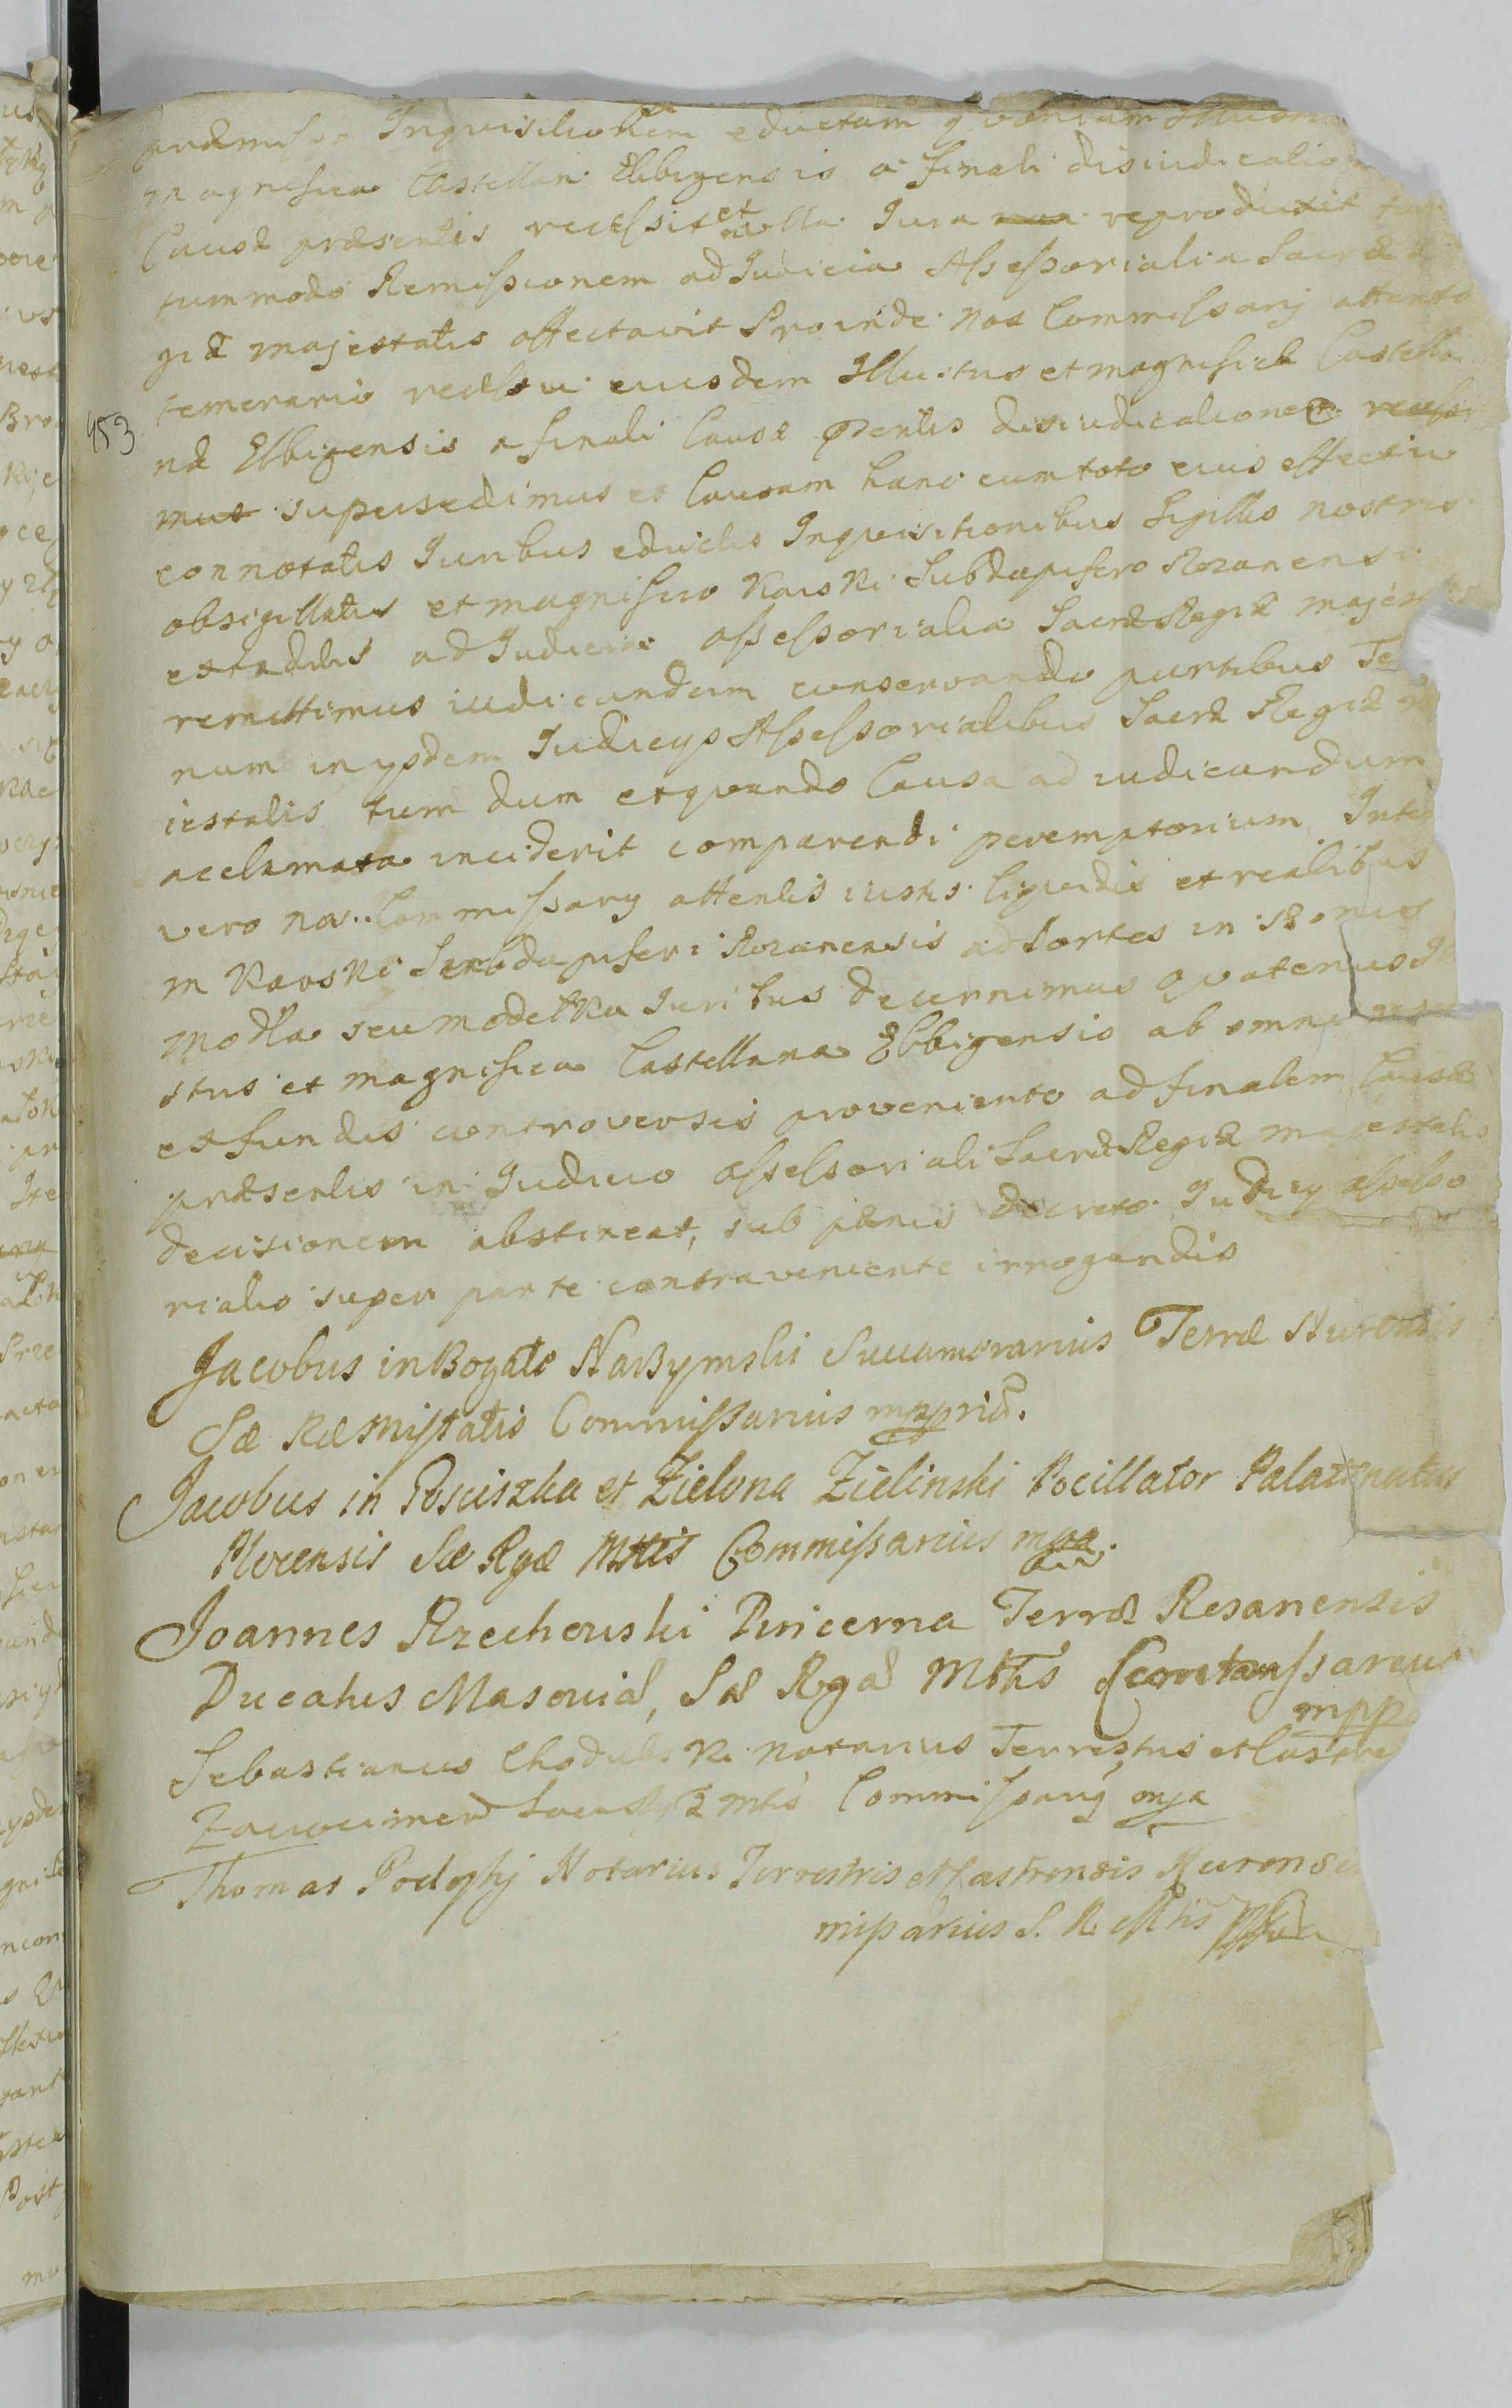 præmissa Inquisitionem eductam quoniam
magnifica Castellan Elbigensis a finali disiudicatio
Causæ præsentis recessit et nulla Iura reproduxit
tummodo Remissionem ad Iudicia Assessorialia Sacræ
giæ majestatis affectavit Proinde nos Commissarij attento
temerario recessu eiusdem Illustris et magnificæ Castella
næ Elbigensis a finali Causæ pntis disiudicatione
453
mus supersedimus et Causam hanc cum toto eius effectu
connotatis Iuribus eductis Inquisitionibus Sigillis nostris
obsigillatis et magnifico Karski Subdapifero Rozanensi
extraditis ad Iudicia assessorialia Sacræ Regiæ majestatis
remittimus iudicandam conservando partibus Te
num in ysdem Iudicys Assessorialibus Sacræ Regiæ
iestatis tum dum et quando Causa ad iudicandum
acclamata inciderit comparendi peremptorium, Inte
vero nos Commissary attentis iustis liquidis et realibus
m Karski Subdapiferi Rozanensis ad Sortes in Bonis
Modła seu modełka Iuribus decernimus Quatenus Ill
stris et magnifica Castellana Elbigensis ab omni
ex fundis controversis proveniente ad finalem Causæ
præsentis in Iudicio assessoriali Sacræ Regiæ majestatis
decisionem abstineat, sub pænis decreto Iudicy assesso
rialis super parte contraveniente irrogandis
Jacobus in Bogate Narzymski Succamerarius Terræ Nurensis
Sæ Ræ Mistatis Commissarius mppriâ.
Jacobus in Posciszka et Zielona Zielinski Pocillator Palatinatus
Plocensis Sæ Rgæ Mttis Commissarius mpp.
Joannes Rzechowski Pincerna Terræ Rosanensis
Ducatus Masoviæ, Sæ Rgæ Mttis
mpp
Sebastianus Chodubski notarius Terrestris et Castre
Commissarij mpa
Thomas Notarius Terrestris et Castrensis Nurensis
missarius S. R. Mttis